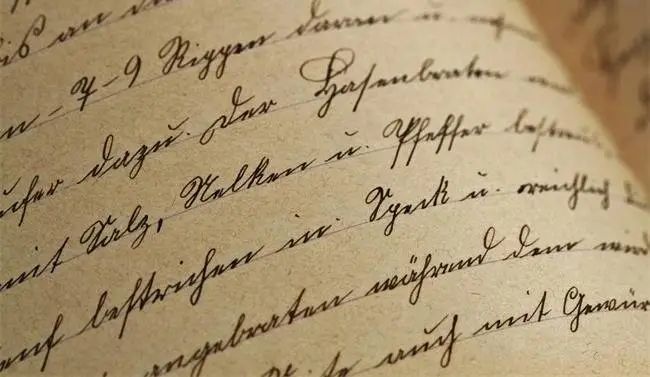 is an di
n - 7-9 Rippen daran u.
ufer dazu. Der Hasenbraten
mit Salz, Nelken u. Pfeffer bestreu
enf bestrichen in. Speck u. reichlich
angebraten während dem wird
te auch mit Gewür